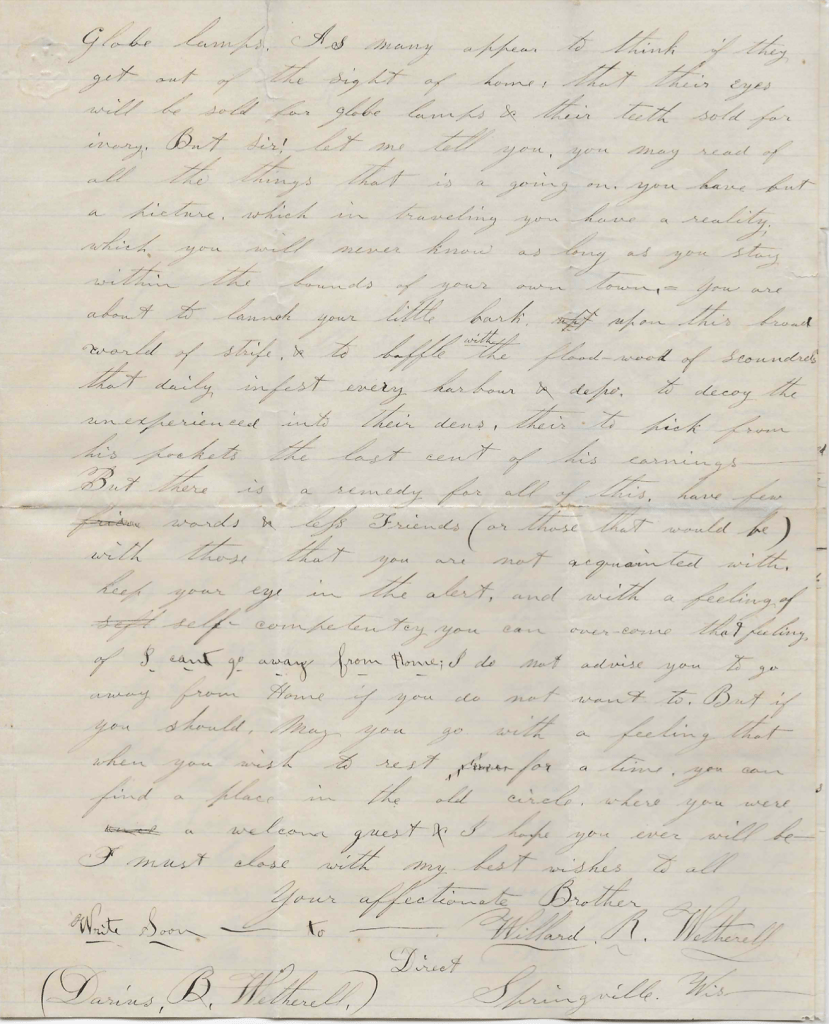 Globe lamps. As many appear to think if they
get out of the sight of home, that their eyes
will be sold for globe lamps & their teeth sold for
ivory. But Sir! let me tell you, you may read of
all the things that is a going on. you have but
a picture. which in traveling you have a reality,
which, you will never know as long as you stay
within the bounds of your own town, = You are
about to launch your little bark, upon this broad
world of strife, & to baffle with the flood-wood of scoundrels
that daily infest every harbour & depo, to decoy the
unexperienced into their dens, their to pick from
his pockets the last cent of his earnings—
But there is a remedy for all of this, have few
words & less Friends (or those that would be)
with those that you are not acquainted with.
keep your eye in the alert, and with a feeling of
self self- competentcy you can over-come that feeling,
of I cant go away from Home; I do not advise you to go
away from Home if you do not want to. But if
you should, May you go with a feeling that
when you wish to rest for a time, you can
find a place in the old circle, where you were
once a welcom guest & I hope you ever will be—
I must close with my best wishes to all
Your affectionate Brother
Write Soon — to — Willard R. Wetherell
Direct
(Darius, B. Wetherell,) Springville. Wis